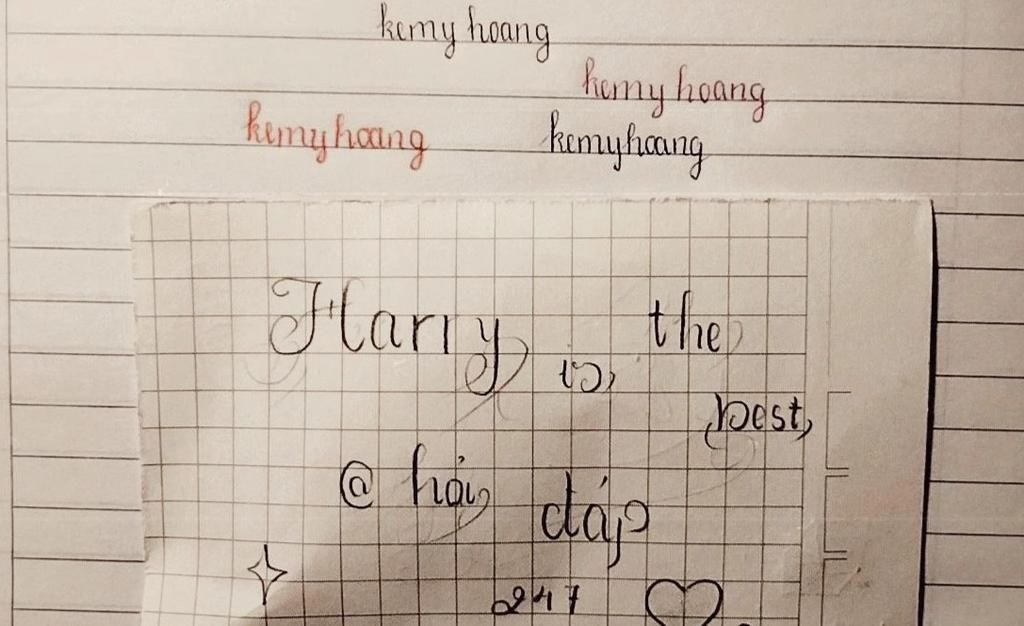 kemy hoang
kemy hoang
kemyhoang
kemyhoang
Harry is the
best
@ hỏi đáp
247